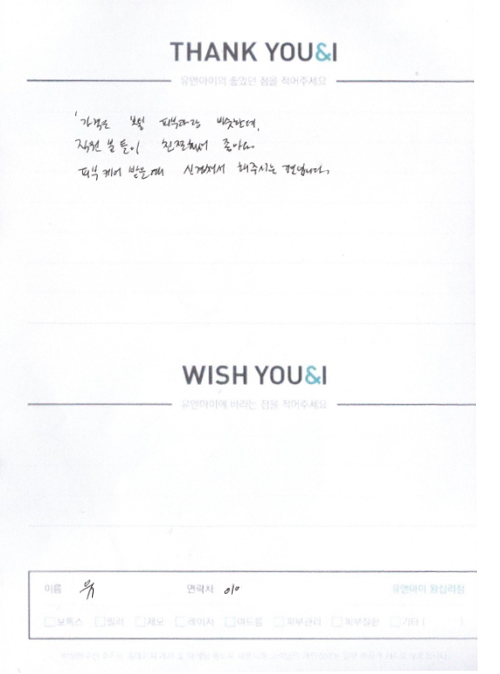 THANK YOU&I
유앤아이의 좋았던 점을 적어주세요
가격도 보통 피부과랑 비슷한데,
직원 분들이 친절해서 좋아요.
피부케어 받을때 신경써서 해주시는 편입니다.
WISH YOU&I
유앤아이에 바라는 점을 적어주세요
이름 유 연락처 010 유앤아이 왕십리점
보톡스 필러 제모 레이저 여드름 피부관리 피부질환 기타 ( )